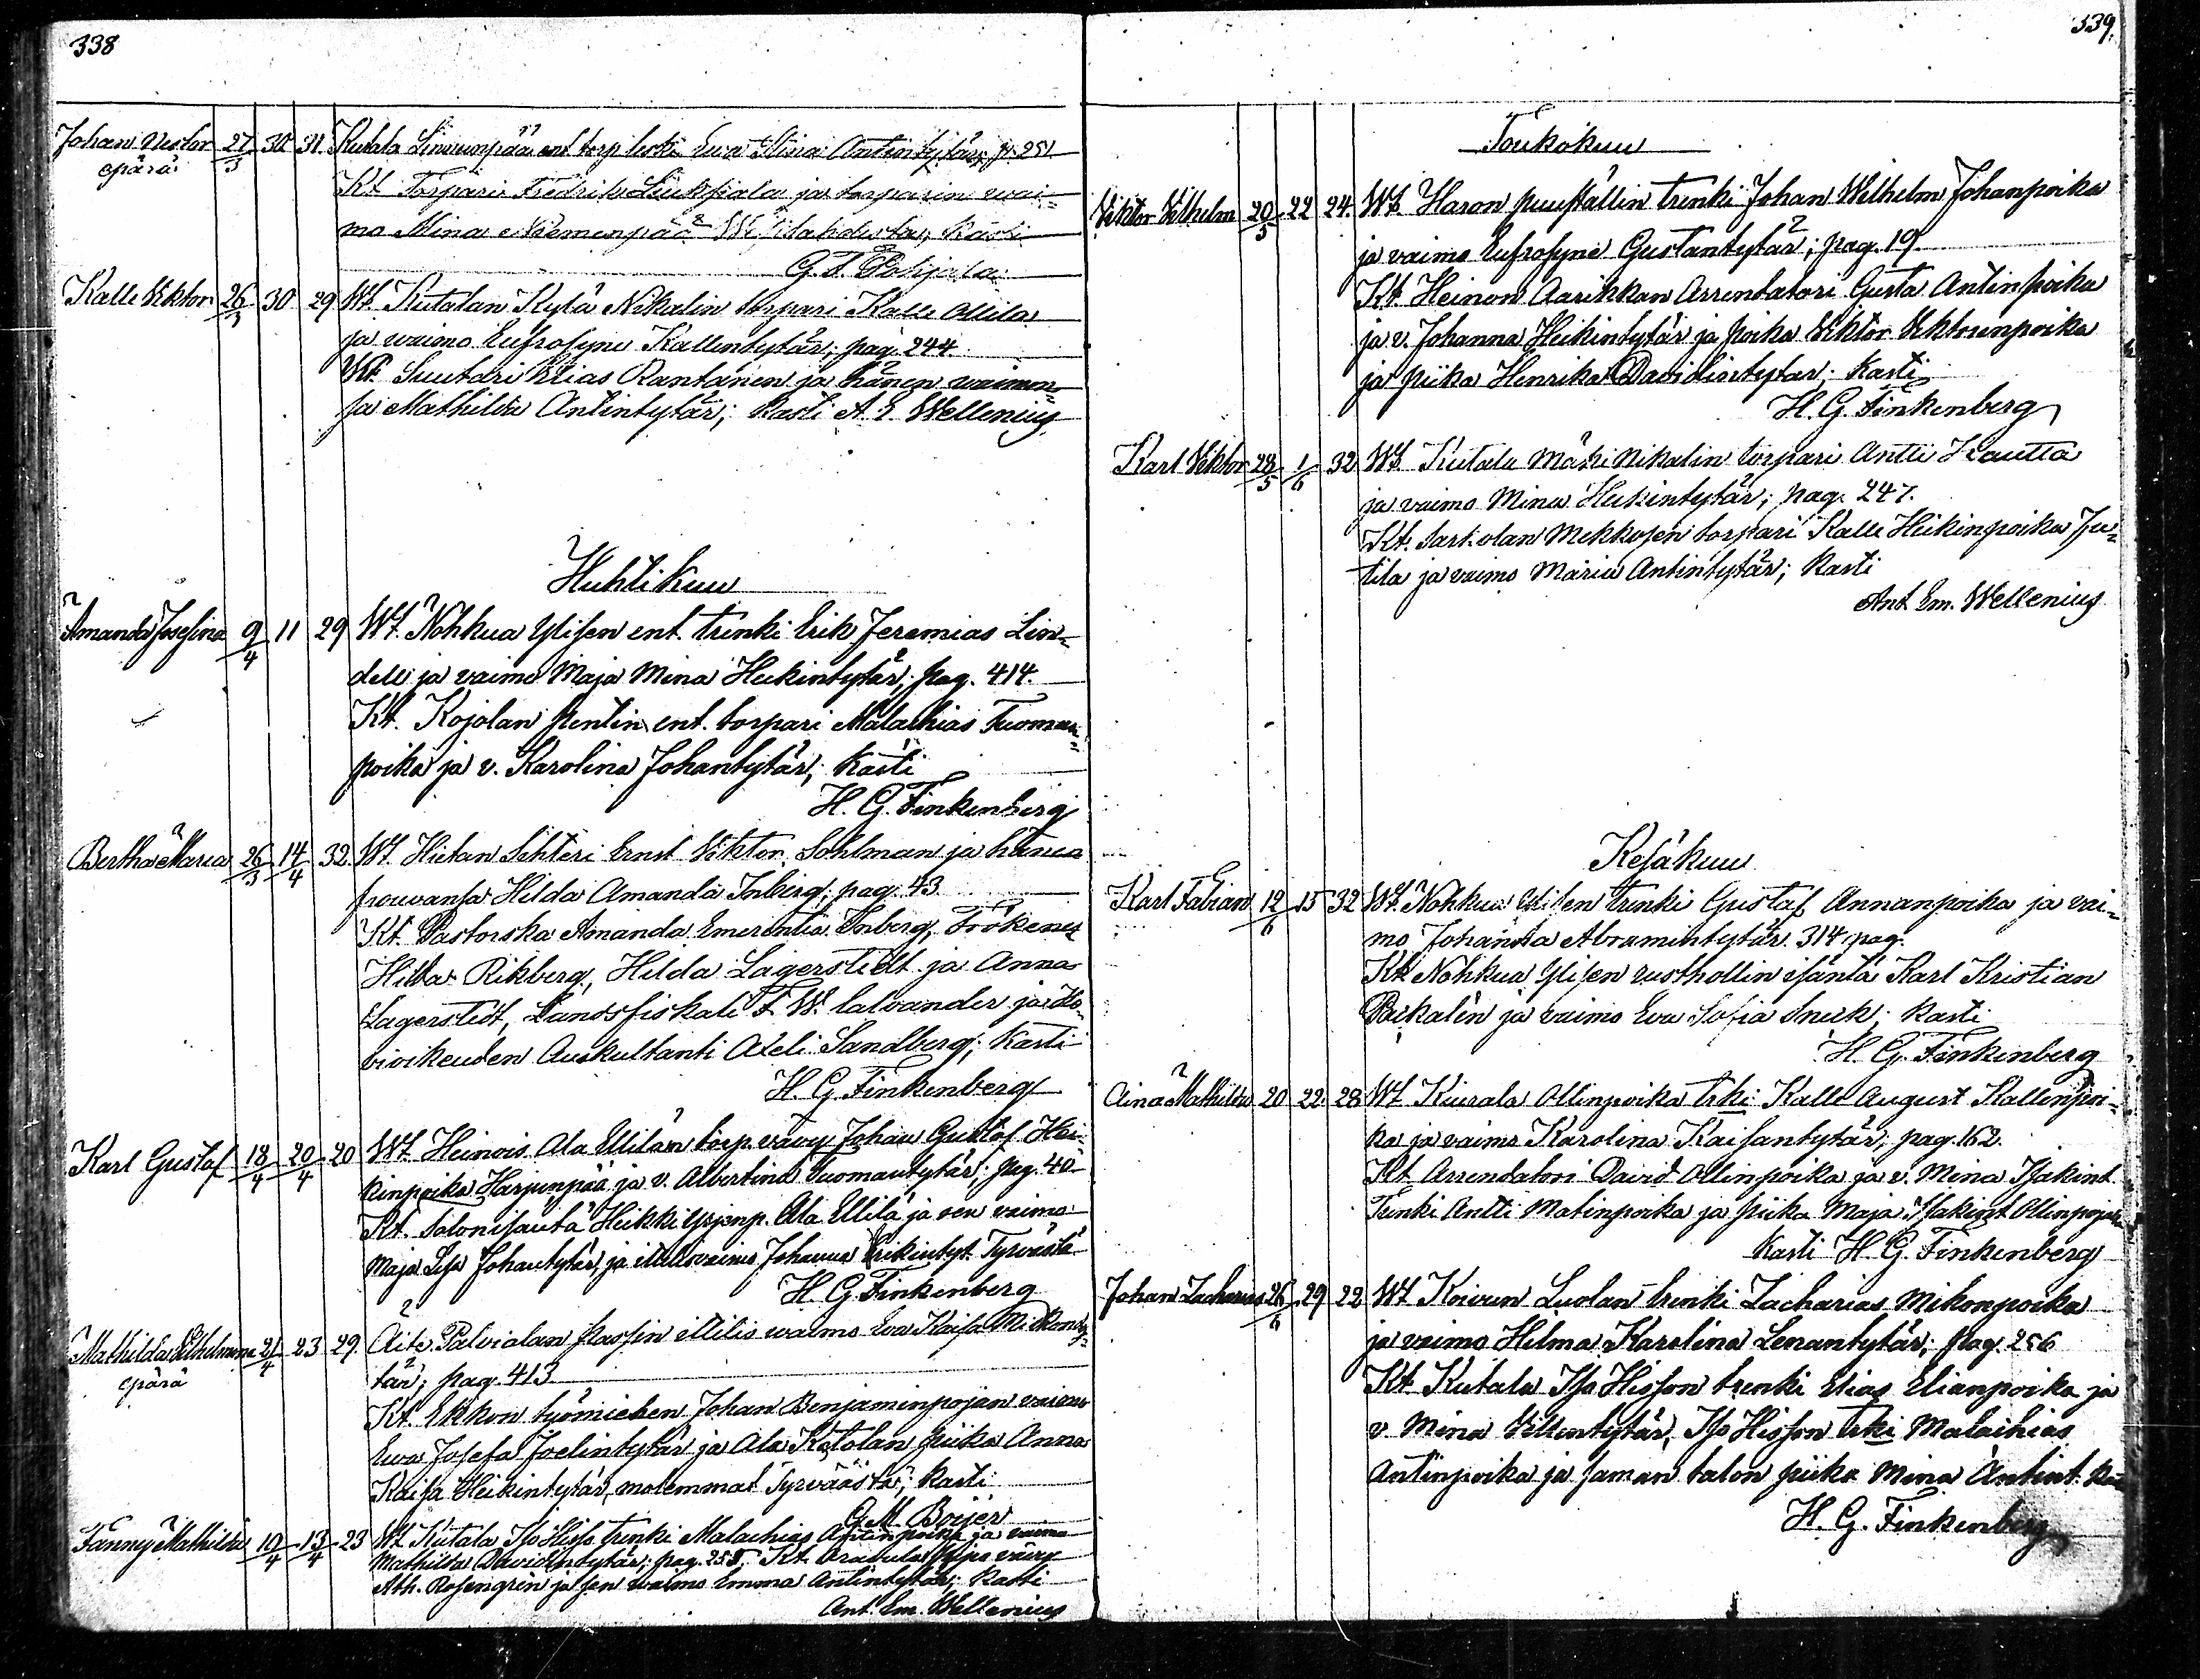 338
Johan Nestor 27/3 30 31 Kutala Liinunpää ent torp leski Eva Stina Antintytär, p. 251
epärä
Kt Torpari Fredrik Liukkiala ja torparin vai=
mo Mina Niemenpää Wesilahdesta, Kasti
G. A. Pohjala
Kalle Viktor 26/3 30 29 Wt. Kutalan Kylä Nikalin torpari Kalle Ollila
ja vaimo Eufrosyne Kallentytär; pag. 244
Kt. Suutari Elias Rantanen ja hänen vaimon=
sa Mathilda Antintytär; Kasti A. E. Wellenius
Huhtikuu
Amanda Josefina 9/4 11 29 Wt. Nohkua Ylisen ent. trenki Erik Jeremias Lin=
dell ja vaimo Maja Mina Heikintytär; pag. 414.
Kt. Kojolan Pentin ent. torpari Malachias Tuoman=
poika ja v. Karolina Johantytär; Kasti
H. G. Finkenberg
Bertha Maria 26/3 14/4 32 Wt. Hietan Sihteri Ernst Viktor Sohlman ja hänen
frouvansa Hilda Amanda Inberg; pag. 43
Kt. Pastorska Amanda Emerentia Inberg, Frökenet
Hilda Rikberg, Hilda Lagerstedt ja Anna
Lagerstedt, Landsfiskali F. W. Calvander ja Ho=
vioikeuden Auskultanti Axeli Sandberg; Kasti
H. G. Finkenberg
Karl Gustaf 18/4 20/4 20 Wt. Heinois Ala Ellilän torp. vävy Johan Gustaf Hei=
kinpoika Harjunpää ja v. Albertina Tuomantytär; pag. 40
Kt. Talonisäntä Heikki Yrjönp. Ala Ellilä ja sen vaimo
Maja Lisa Johantytär, ja itellisvaimo Johanna Erikintyt. Tyrväästä
H. G. Finkenberg
Mathilda Vilhelmina 21/4 23 29 Äiti Palvialan Passin itellis vaimo Eva Kaisa Mikonty=
epärä
tär; pag. 413
Kt. Ekkon työmiehen Johan Benjaminpojan vaimo
Eva Josefa Joelintytär ja Ala Kotolan piika Anna
Kaisa Heikintytär, molemmat Tyrväästä; Kasti
G. M. Boijer
Fanny Mathilda 10/4 13/4 23 Wt. Kutala Iso Hisso trenki Malachias Antinpoika ja vaimo
Mathilda Davidintytär; pag. 255. Kt. vävy
Ath. Rosengrén ja sen vaimo Emma Antintytär; Kasti
Ant. Em. Wellenius
339.
Toukokuu
Viktor Vilhelm 20/5 22 24. Wt. Haron puuställin trenki Johan Wilhelm Johanpoika
ja vaimo Eufrosyne Gustantytär; pag. 19.
Kt. Heinon Aarikkan Arrentatori Gusta Antinpoika
ja v. Johanna Heikintytär ja poika Viktor Viktorinpoika
ja piika Henrika Davidintytär; Kasti
H. G. Finkenberg
Karl Viktor 28/5 1/6 32 Wt. Kutala Mäki Nikalin torpari Antti Kautta
ja vaimo Mina Heikintytär; pag. 247.
Kt. Sarkolan Mekkosen torpari Kalle Heikinpoika Ju=
tila ja vaimo Maria Antintytär; Kasti
Ant. Em. Wellenius
Kesäkuu
Karl Fabian 12/6 15 32 Wt. Nohkua Ylisen trenki Gustaf Annanpoika ja vai=
mo Johanna Abramintytär 314 pag.
Kt. Nohkua Ylisen rusthollin isäntä Karl Kristian
Paikalén ja vaimo Eva Sofia Snek; Kasti
H. G. Finkenberg
Aina Mathilda 20 22 28 Wt Kiurala Ollinpoika trki Kalle August Kallenpoi=
ka ja vaimo Karolina Kaisantytär; pag. 162.
Kt. Arrendatori David Ollinpoika ja v. Mina Isakint.
Trenki Antti Matinpoika ja piika Maja Isakint Ollinpoja
Kasti H. G. Finkenberg
Johan Zacharias 26/6 29 22 Wt Koivun Luolan trenki Zacharias Mikonpoika
ja vaimo Helma Karolina Lenantytär; pag. 256
Kt. Kutala Iso Hisson trenki Elias Elianpoika ja
v. Mina Villentytär, Iso Hisson trki Malachias
Antinpoika ja saman talon piika Mina Antint. Ka
H. G. Finkenberg